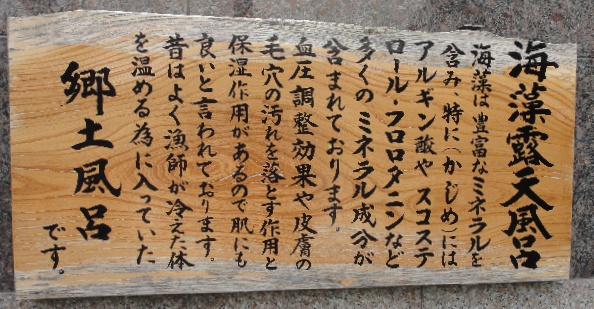 海藻露天風呂
海藻は豊富なミネラルを
含み 特に(かじめ)には
アルギン酸や スコステ
ロール・フロロタニンなど
多くの ミネラル成分が
含まれております。
血圧調整効果や皮膚の
毛穴の汚れを落とす作用と
保湿作用があるので肌にも
良いと言われております。
昔はよく漁師が冷えた体
を温める為に入っていた
郷土風呂
です。